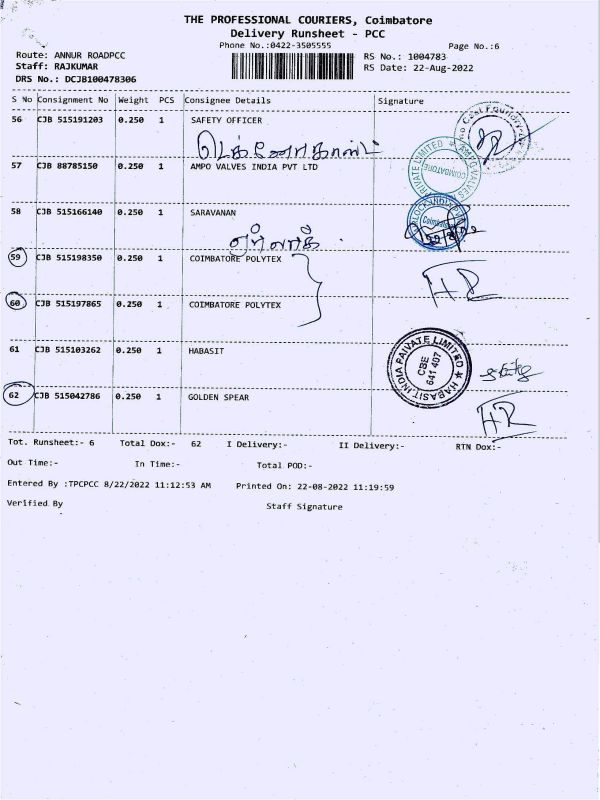 THE PROFESSIONAL COURIERS, Coimbatore
Delivery Runsheet - PCC
Phone No.:0422-3505555
Page No.:6
Route: ANNUR ROADPCC
RS No.: 1004783
Staff: RAJKUMAR
RS Date: 22-Aug-2022
DRS No.: DCJB100478306
S No Consignment No Weight PCS Consignee Details Signature
56 CJB 515191203 0.250 1 SAFETY OFFICER
டெக்னோகாஸ்ட்
57 CJB 88785150 0.250 1 AMPO VALVES INDIA PVT LTD
PRIVATE LIMITED ★ AMPO VALVES
COIMBATORE
58 CJB 515166140 0.250 1 SARAVANAN
Coimbatore
59 CJB 515198350 0.250 1 COIMBATORE POLYTEX
HR
60 CJB 515197865 0.250 1 COIMBATORE POLYTEX
61 CJB 515103262 0.250 1 HABASIT
HABASIT INDIA PRIVATE LIMITED ★
CBE
641 407
62 CJB 515042786 0.250 1 GOLDEN SPEAR
HR
Tot. Runsheet:- 6 Total Dox:- 62 I Delivery:- II Delivery:- RTN Dox:-
Out Time:- In Time:- Total POD:-
Entered By :TPCPCC 8/22/2022 11:12:53 AM Printed On: 22-08-2022 11:19:59
Verified By Staff Signature